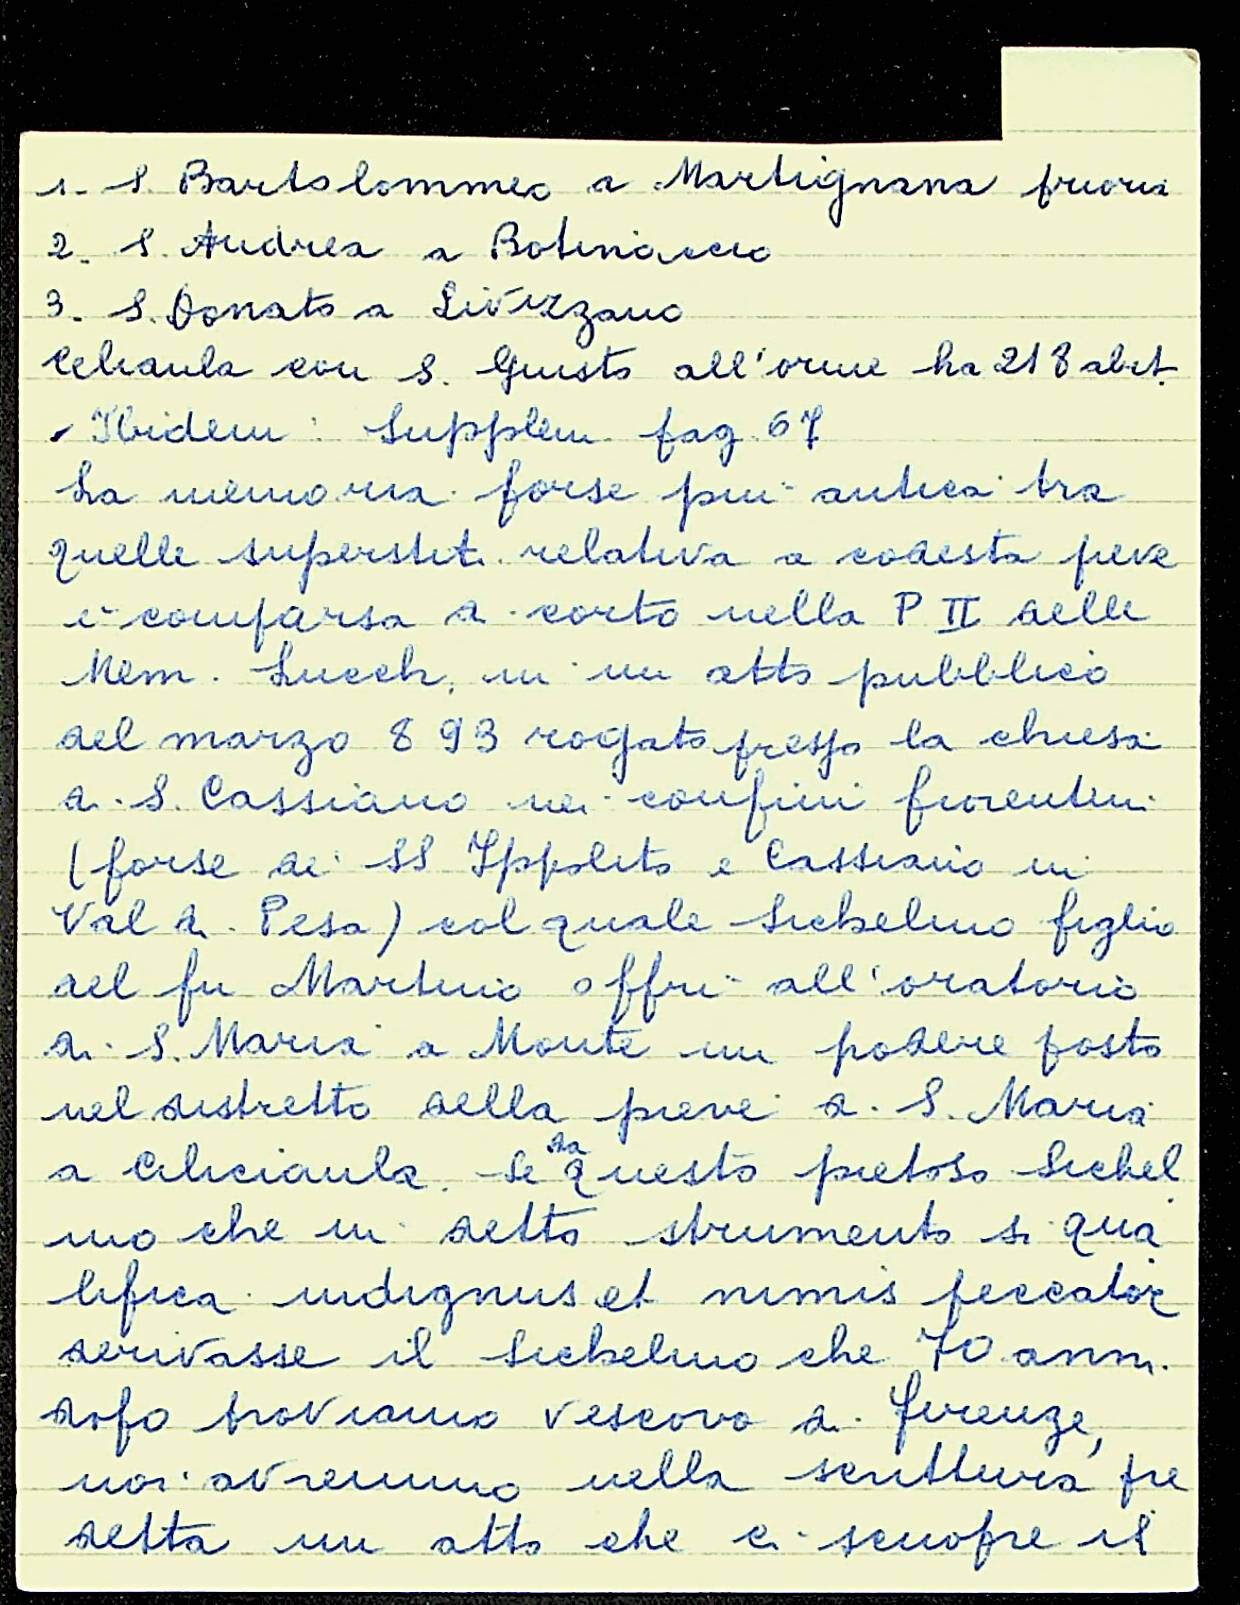 1. S. Bartolommeo a Martignana prioria
2. S. Andrea a Botinaccio
3. S. Donato a Livizzano
Celiaula con S. Giusto all'orme ha 218 abit.
Ibidem: Supplem. pag. 67
La memoria forse più antica tra
quelle superstiti relativa a codesta pieve
è comparsa di corto nella P II delle
Mem. Lucch. in un atto pubblico
del marzo 893 rogato presso la chiesa
di S. Cassiano nei confini fiorentini
(forse dei SS Ippolito e Cassiano in
Val di Pesa) col quale Sichelmo figlio
del fu Martino offrì all'oratorio
di S. Maria a Monte un podere posto
nel distretto della pieve di S. Maria
a Ciliciaula. Se da questo pietoso Sichel
mo che in detto strumento si qua
lifica indignus et nimis peccator
derivasse il Sichelmo che 70 anni
dopo troviamo vescovo di Firenze,
noi avremmo nella scrittura pre
detta un atto che ci scuopre il